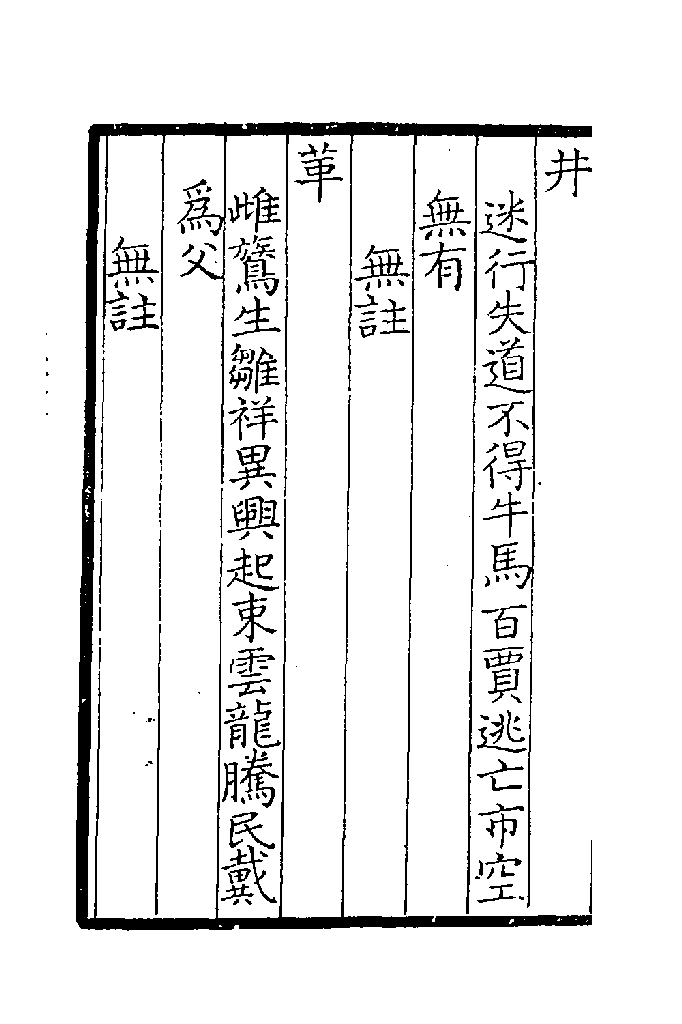 井
迷行失道不得牛馬百賈逃亡市空
無有
無註
革
雌鶯生雛祥異興起東雲龍騰民戴
爲父
無註